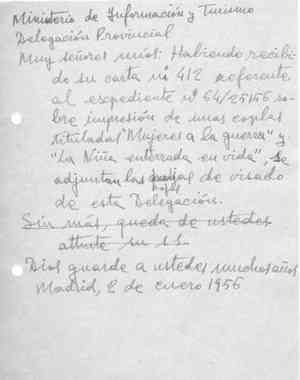 Ministerio de Información y Turismo
Delegación Provincial
Muy señores míos: Habiendo recibi-
do su carta nº 412 referente
al expediente nº 64/25156 so-
bre impresión de unas coplas
tituladas "Mujeres a la guerra" y
"La Niña enterrada en vida", se
adjuntan las hojas de visado
de esta Delegación.
Sin más, queda de ustedes
attmte su s.s.
Dios guarde a ustedes muchos años
Madrid, 2 de enero 1956